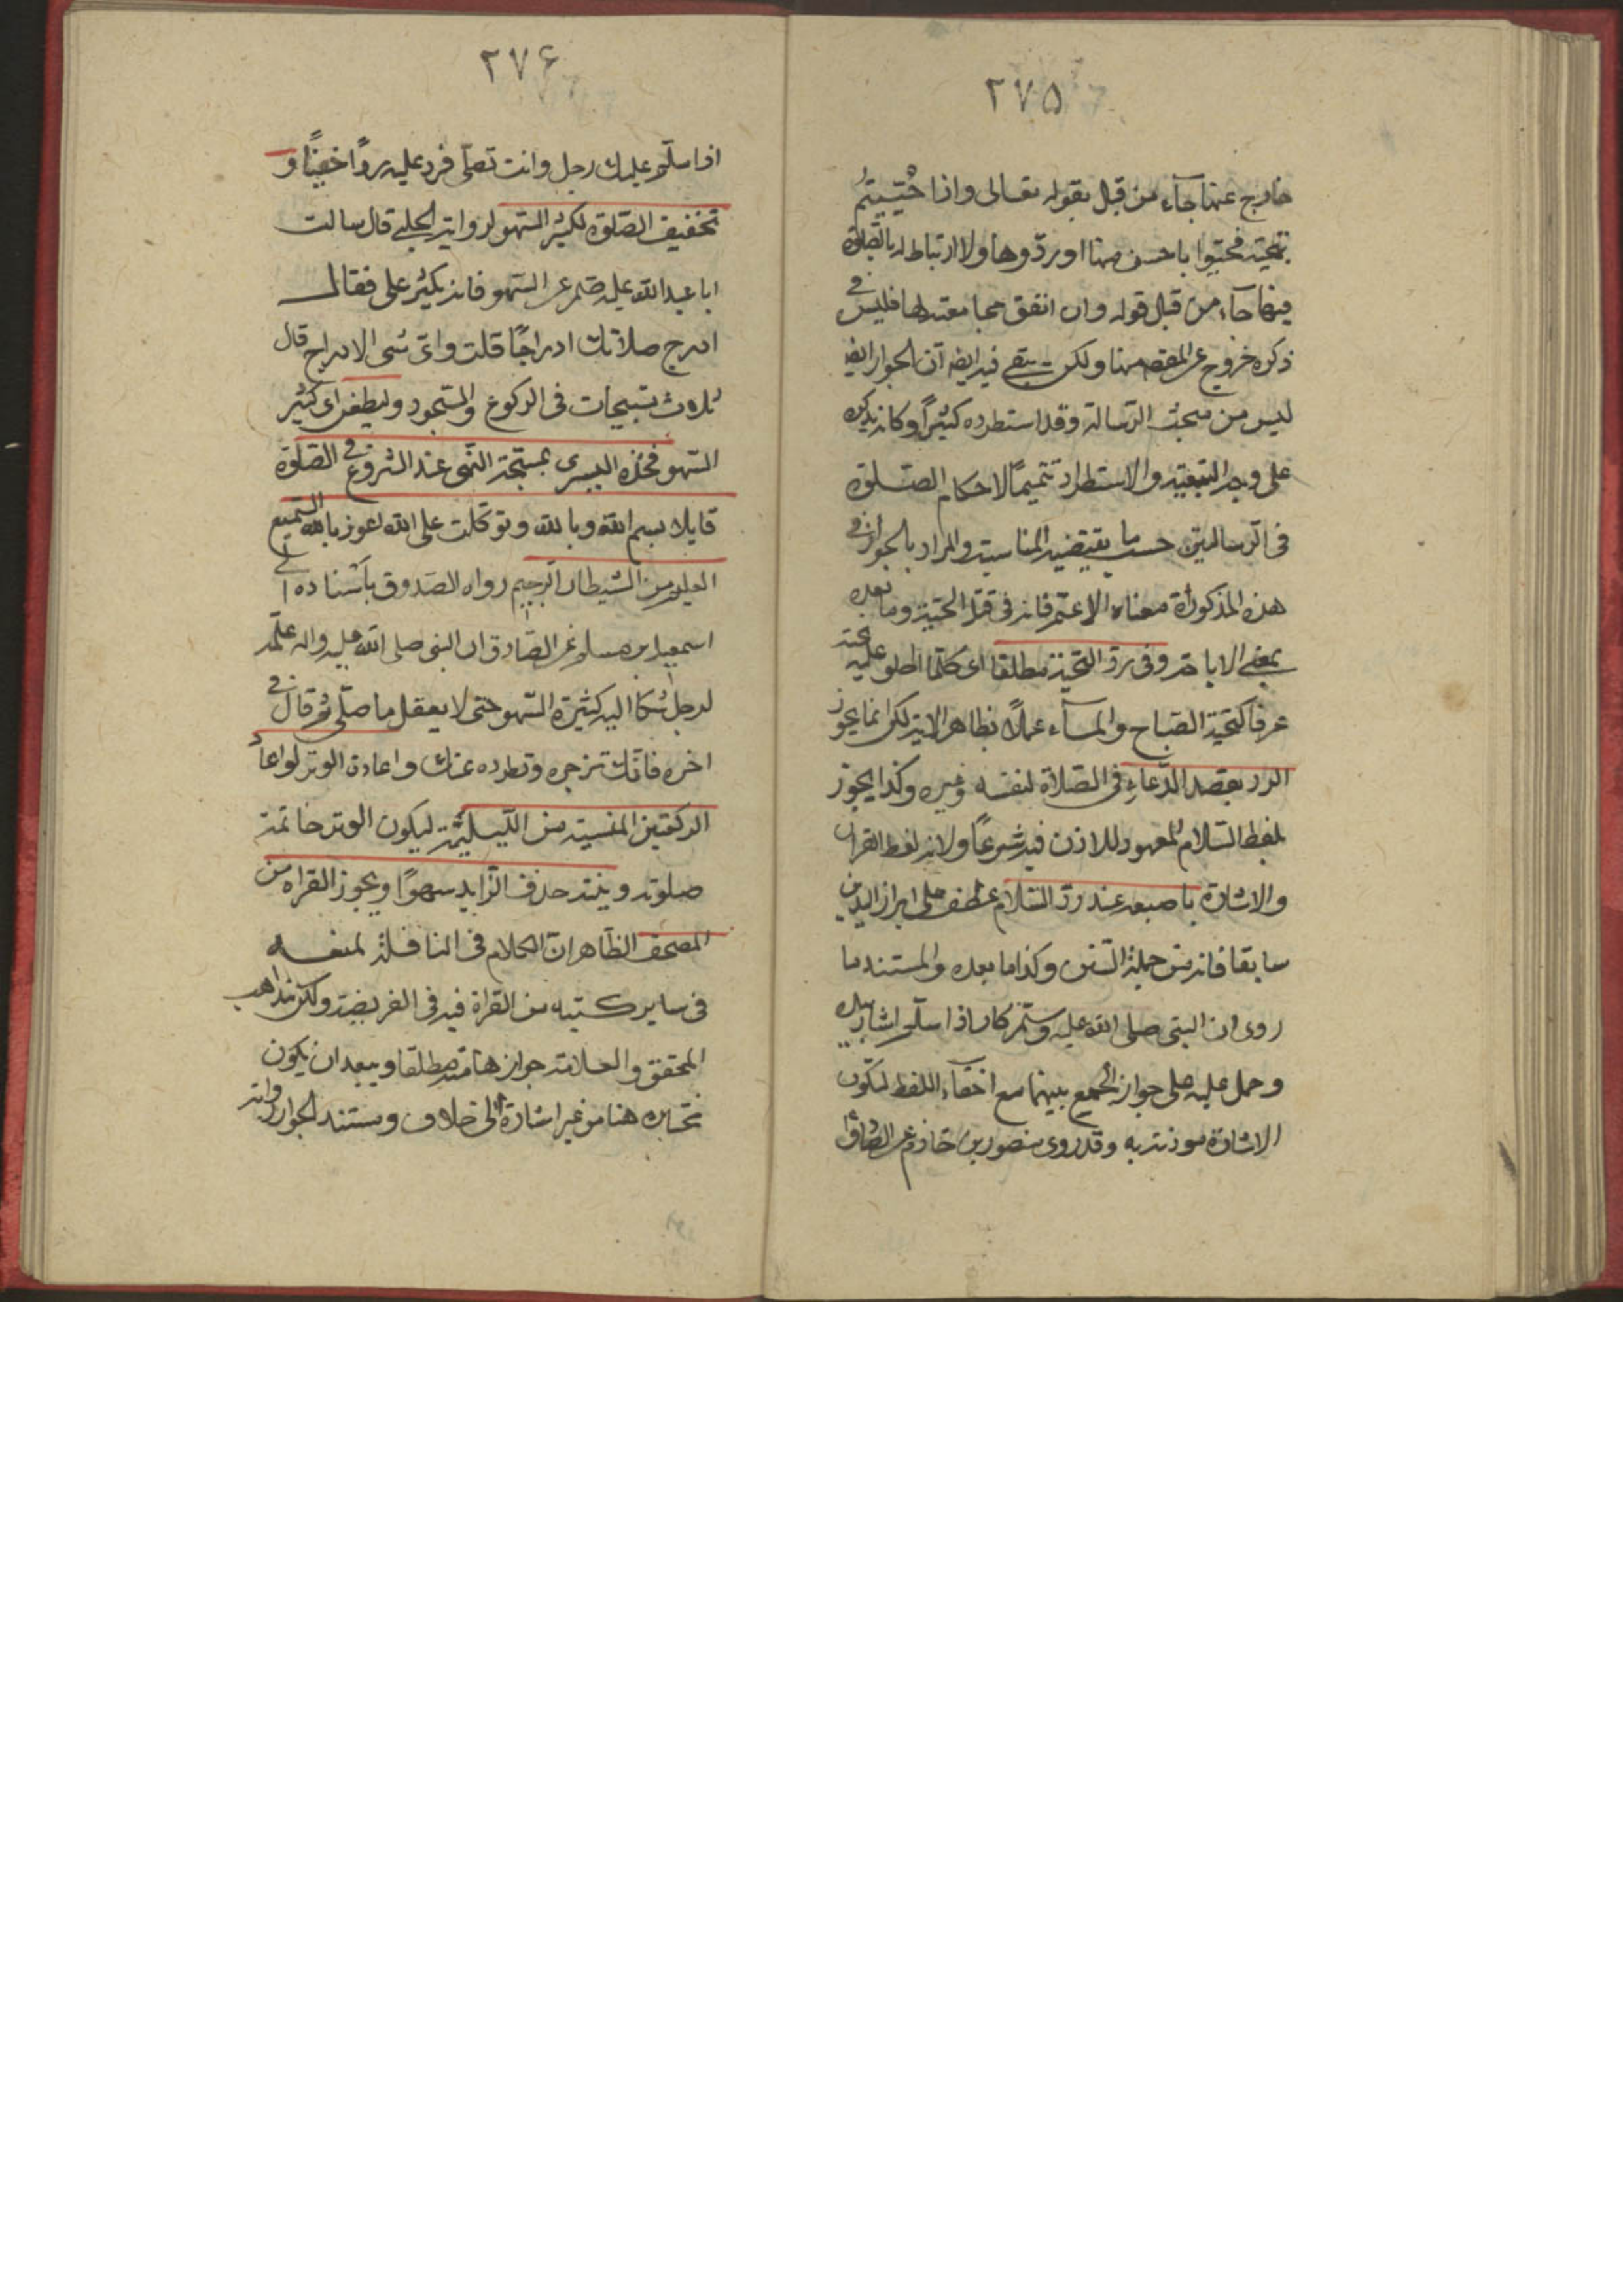 ٢٧٥
خارج عنها جاء من قبل بقوله تعالى واذا حُيّيتُم
بتحيّة فحيّوا باحسن منها او ردّوها ولا ارتباط له بالصّلوة
فيها جاء من قبل قوله وان اتفق مجامعته لها فليس في
ذكره خروج عن المقصد منها ولكن يبقى فيه ايضا ان الجواز ايضا
ليس من مبحث الرسالة وقد استطرده كثيراً وكانه يذكره
على وجه التبعيّة والاستطراد تتميمًا لاحكام الصّلوة
في الرسالتين حسب ما يقتضيه المناسبة والمراد بالجواز في
هذه المذكورة معناه الاعم فانه في قتل الحيّة وما بعده
بمعنى الاباحة وفي ردّ التحيّة مطلقا اى كلّما اطلق عليه تحية
عرفا كتحيّة الصّباح والمسآء عملًا بظاهر الاية لكن انما يجوز
الرد بقصد الدّعاء في الصّلاة لنفسه وغيره وكذا يجوز
بلفظ السّلام المعهود للاذن فيه شرعًا ولانه لفظ القران
والاشارة باصبعه عند ردّ السّلام عطف على ابراز اليدين
سابقا فانه من جملة السّنن وكذا ما بعده والمستند ما
روى ان النبى صلى الله عليه وسلم كان اذا سلّم اشار بيده
وحمل عليه على جواز الجمع بينهما مع اخفاء اللفظ لتكون
الاشارة موذنة به وقد روى منصور بن حازم عن الصّادق
٢٧۶
اذا سلّم عليك رجل وانت تصلّى فرد عليه ردًّا خفيًّا و
تخفيف الصّلوة لكثير السّهو لرواية الحلبي قال سالت
ابا عبدالله عليه السلم عن السّهو فانه يكثر على فقال
ادرج صلاتك ادراجًا قلت واىّ شى الادراج قال
ثلاث تسبيحات في الركوع والسّجود وليطعن اى كثير
السّهو فخذه اليسرى بمسبّحته اليمنى عند الشروع في الصّلوة
قايلا بسم الله وبالله وتوكلت على الله اعوذ بالله السّميع
العليم من الشيطان الرّجيم رواه الصّدوق باسناده الى
اسمعيل بن مسلم عن الصّادق ان النبى صلى الله عليه واله علّمه
لرجل شكا اليه كثيرة السّهو حتى لا يعقل ما صلّى ثم قال في
اخره فانّك تزجره وتطرده عنك واعادة الوتر لو اعاد
الركعتين المنسيّة من اللّيلية ليكون الوتر خاتمة
صلوته وينبّه حذف الزّايد سهوًا ويجوز القراه من
المصحف الظّاهر ان الكلام في النافلة لمنعه
في ساير كتبه من القراة فيه في الفريضة ولكن مذاهب
المحقق والعلامة جوازها منه مطلقا ويبعد ان يكون
يختاره هنا من غير اشارة الى خلاف ومستند الجواز رواية